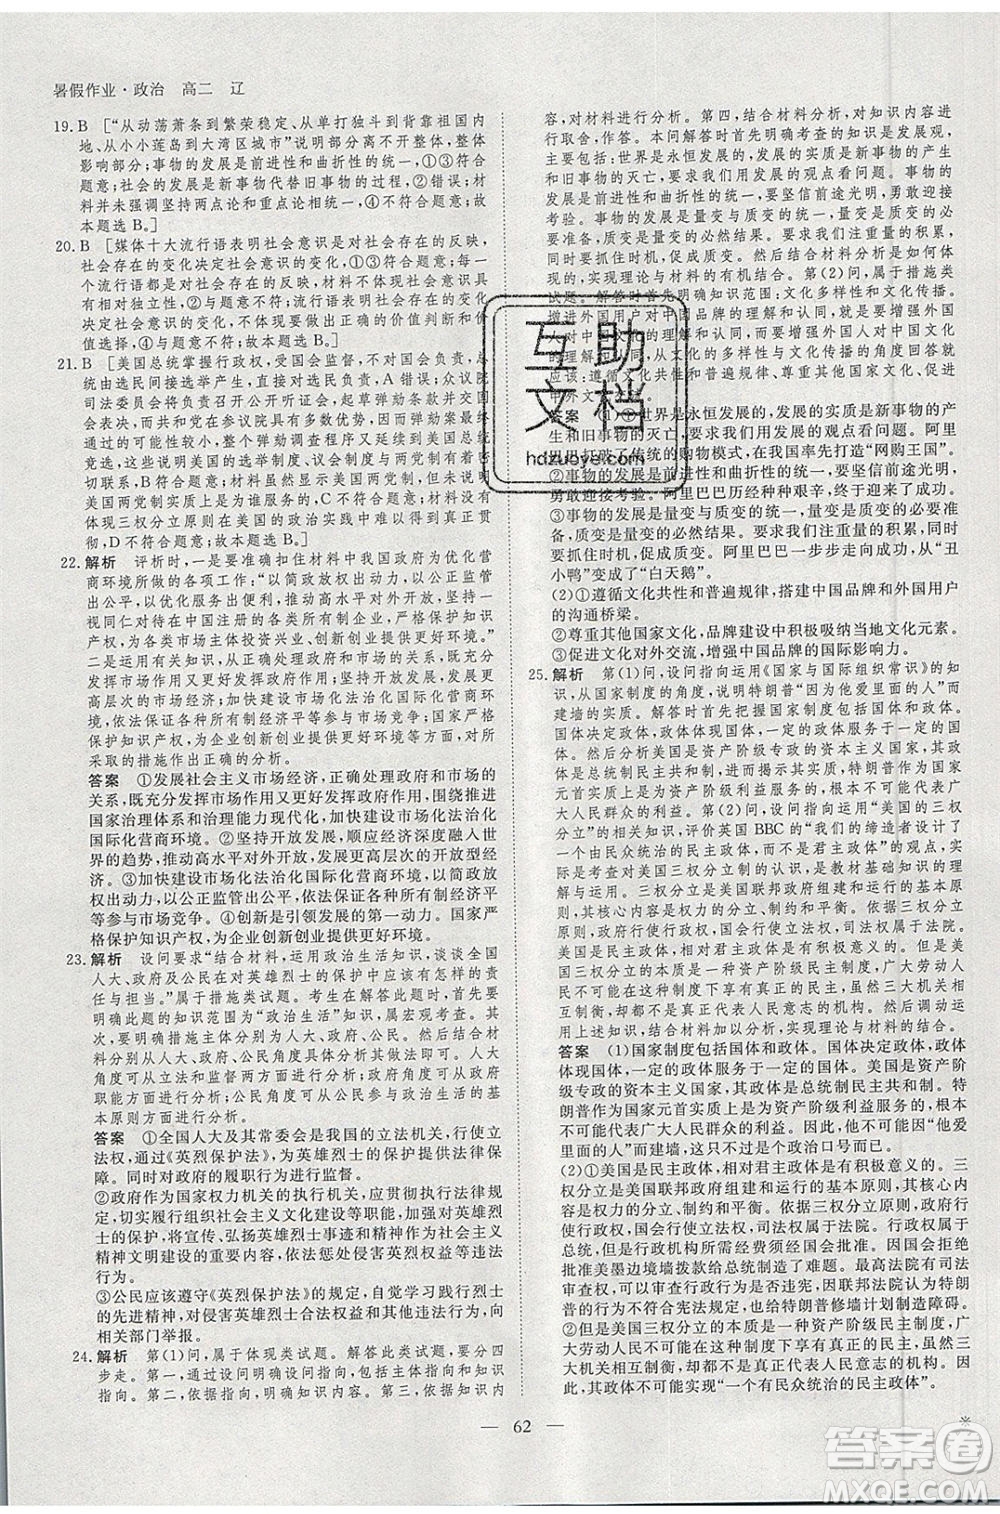 暑假作业·政治 高二 辽
19.B [“从动荡萧条到繁荣稳定、从单打独斗到背靠祖国内
地、从小小莲岛到大湾区城市”说明部分影响整体、整体
影响部分；事物的发展是前进性和曲折性的统一，①③符合
题意；社会的发展是新事物代替旧事物的过程，②错误；材
料并未强调坚持两点论和重点论的统一，④不符合题意。
故本题选B。]
20.B [媒体十大流行语表明社会意识是对社会存在的反映，
社会存在的变化决定社会意识的变化，①③符合题意；每
一个流行语都是对社会存在的反映，不能表明社会意识具
有相对独立性，②与题意不符；流行语表明社会意识是对社
会存在的反映，未体现流行语能形成正确的价值判断与价
值选择，④不符合题意。故本题选B。]
21.B [美国总统掌握行政权，受国会监督，不对国会负责，总统
由选民间接选举产生，对选民负责，A错误；众议院情报、
司法委员会将负责召开公开听证会，起草弹劾条款并进行
表决，而共和党在参议院的席位具有多数优势，因而弹劾案
最终由参议院决定，弹劾调查程序又延续到美国未来总统
竞选，说明美国的选举制度、议会制度与两党制有机结合、
相互影响，B符合题意；材料没有涉及美国两党制，也没有说
美国两党制实质上是为谁服务的，C不符合题意；材料没有
体现三权分立原则在美国的政治实践中难以真正贯彻执
行，D不符合题意。故本题选B。]
22.解析 评析时，一是要准确扣住材料中我国政府为优化营
商环境所做的各项工作；“以简政放权放出活力和动力、以
公正监管管出公平、以优化服务服出便利”“对所有企业一
视同仁对在中国注册的各类企业平等对待”等，说明政府
为各类市场主体投资兴业、创新创业提供更好环境。
二是要运用有关知识，从正确处理政府与市场的关系、坚
持对外开放、加快建设市场化法治化国际化营商环境、保
障各种所有制经济平等参与市场竞争、国家严格保护知识
产权为企业创新创业提供更好环境等角度，对我国政府所
采取的措施作出正确的分析。
答案 ①发展社会主义市场经济，正确处理政府和市场的
关系，既充分发挥市场作用又更好发挥政府作用，围绕推进
国家治理体系和治理能力现代化，加快建设市场化法治化
国际化营商环境。②坚持开放发展，顺应经济深度融入世
界的趋势，推动高水平对外开放，发展更高层次的开放型经
济。③加快建设市场化法治化国际化营商环境，以简政放
权放出动力，以公正监管出公平，保障各种所有制经济平
等参与市场竞争。④创新是引领发展的第一动力。国家严
格保护知识产权，为企业创新创业提供更好环境。
23.解析 设问要求“结合材料，运用政治生活知识，谈谈全国
人大、政府及公民在对英雄烈士的保护中应该有怎样的责
任与担当。”属于措施类试题。考生在解答此题时，首先要
明确此题的知识范围为“政治生活”，属宏观考查。其次要
明确措施主体分别为人大、政府、公民。然后结合材料分别
从人大、政府、公民角度进行分析。人大角度可以从人大的
职能方面进行分析；政府角度可以从政府的性质、职能等方
面进行分析；公民角度可以从公民的权利和义务、参与的基
本原则等方面进行分析。
答案 ①全国人大及其常委会是我国的立法机关，行使立
法权，通过《英烈保护法》，为英雄烈士的保护提供法律保
障。同时对政府的履职行为进行监督。
②政府作为国家权力机关的执行机关，应严格执行法律规
定，切实履行组织社会主义文化建设等职能，对英雄烈士的
的保护，将宣传、弘扬英雄烈士事迹和精神作为社会主义
精神文明建设的重要内容，依法惩处侵害英烈的违法犯罪
行为。
③公民应该遵守《英烈保护法》，自觉学习和践行烈士的
各种精神，对侵害英雄烈士合法权益和行为及时制止，向
相关部门举报。
24.解析 第(1)问，属于体现类试题。解答此类试题，要分四
步走。第一，依据设问，明确设问指向和知识范围、知识
指向。第二，依据指向，明确知识内容。第三，依据知识内
容，对材料进行分析。第四，结合材料分析，对知识内容进
行取舍，作答。本问解答时首先明确考查的知识是发展观，
主要包括：世界是永恒发展的，发展的实质是新事物的产生
和旧事物的灭亡，要求我们用发展的观点看问题；事物的
发展是前进性和曲折性的统一，坚信前途光明，勇敢迎接
考验。事物的发展是量变与质变的统一，量变是质变的必
要准备，质变是量变的必然结果，要求我们重视量的积累，
抓住时机，促成质变。然后结合材料分析阿里巴巴是如何体
现的，实现理论与材料的有机结合。第(2)问，属于措施类
试题。解答时首先明确知识范围：文化生活。如何做才能
增进外国用户对中国品牌的理解和认同，就要增强外国人
对中国文化的理解和认同，从而要增强外国人对中国文化
的理解和认同，要从文化多样性与文化传播的角度回答就
应该：遵循文化共性与普遍规律，尊重其他国家文化、促进
中外文化交流。
答案 (1)①世界是永恒发展的，发展的实质是新事物的产
生和旧事物的灭亡，要求我们用发展的观点看问题。阿里
巴巴打破了传统的购物模式，在我国率先打造“网购王国”。
②事物的发展是前进性和曲折性的统一，坚信前途光明，
勇敢迎接考验。阿里巴巴历经种种艰辛，终于走向成功。
③事物的发展是量变与质变的统一，量变是质变的必要准
备，质变是量变的必然结果，要求我们注重量的积累，抓
住时机，促成质变。阿里巴巴一步一步走向成功，从“丑
小鸭”变成了“白天鹅”。
(2)①遵循文化共性与普遍规律，搭建中国品牌和外国用户
的沟通桥梁。
②尊重其他国家文化，品牌建设中积极吸纳当地文化元素。
③促进文化对外交流，增强中国品牌的国际影响力。
25.解析 第(1)问，设问指向运用《国家与国际组织常识》的知
识，从国家制度的角度，说明特朗普“因为他爱里面的人”而
建墙的实质。解答时首先把握国家制度包括国体和政体。
国体决定政体，政体体现国体，一定的政体服务于一定的国
体。然后分析美国是资产阶级专政的资本主义国家，美国
总统作为国家元首实质上是为资产阶级利益服务的，不可能
代表广大人民群众的利益。第(2)问，设问指向运用“美国的三权
分立”的知识，评价英国BBC的“我们的缔造者们设计了
由民众统治的民主政体，而不是君主政体”的观点，实质
是考查对美国三权分立制的认识，是教材基础知识的
回顾与再现。三权分立是美国联邦政府组建和运行的基
本原则，实现了权力的分立、制约和平衡。依据三权分立原
则，行政权属于总统，国会行使立法权，司法权属于法院。
美国是民主政体，但实质上是资产阶级民主制度，广大劳动
人民在这种政体下享有真正意义的民主是不可能的，三
大机关都不是真正代表人民意志的机构。然后调动与运
用材料进行分析，实现理论与材料的有机结合。
答案 (1)国家制度包括国体和政体。国体决定政体，政体
体现国体，一定的政体服务于一定的国体。美国是资产阶
级专政的资本主义国家，其政体是总统制民主共和制。特
朗普作为国家元首实质上是为资产阶级利益服务的，不可
能真正代表广大人民群众的利益。因此，他不可能因为“他爱里
面的人”而建墙，这只不过是个政治口号而已。
(2)①美国是民主政体，相对君主政体是有积极意义的。三
权分立是美国联邦政府组建和运行的基本原则，其实现了权力的
分立、制约和平衡。依据三权分立原则，行政权属于总统、国会
政府，国会行使立法权，司法权属于法院。美国三权分立
是，行政机构所需经费须经国会批准。因国会拒绝
批准建造美墨边境墙拨款给总统制造了难题。最高法院有
权审查行政行为是否违宪，因联邦法院以特朗普修墙
的行为不符合宪法规定，也使特朗普修墙计划制造障碍。
②但是美国三权分立的实质是资产阶级民主制度，广
大劳动人民在这种政体下享有真正意义的民主是不可能的，三
大机关都不是“一个有民众统治的民主政体”。
— 62 —
互助文档
hdzuoye.com
答案圈
MXQE.COM